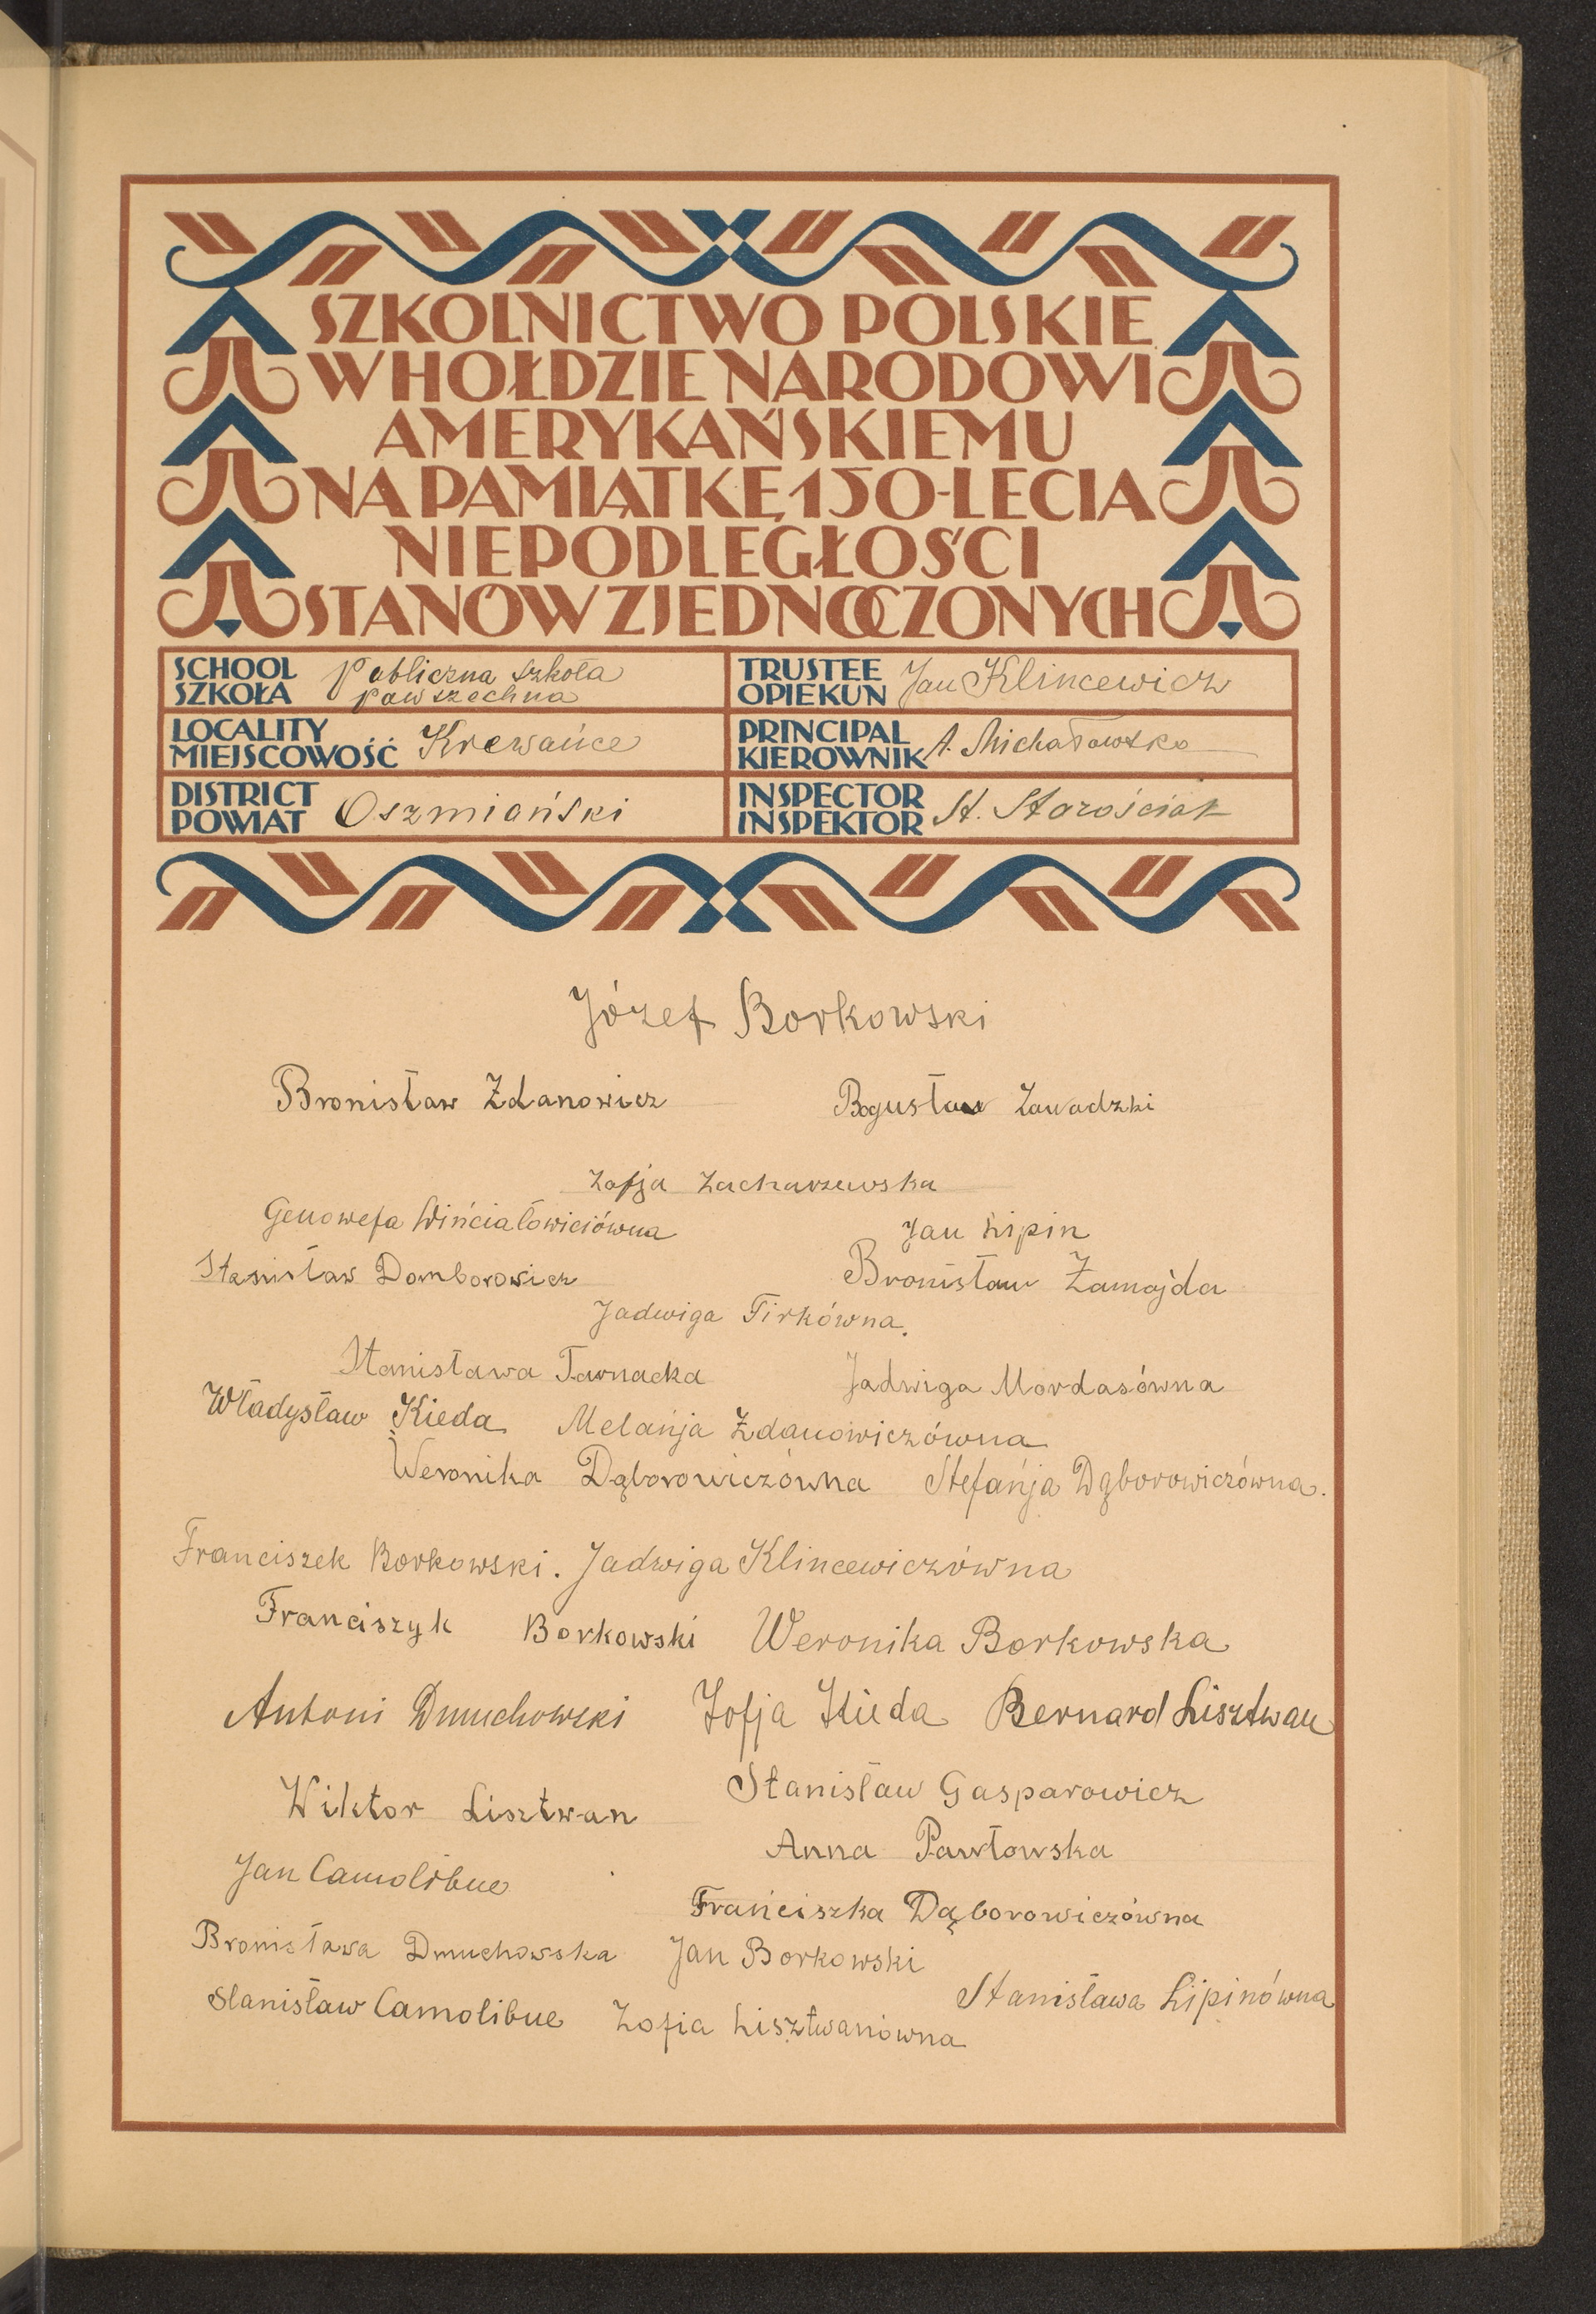 SZKOLNICTWO POLSKIE
W HOŁDZIE NARODOWI
AMERYKAŃSKIEMU
NA PAMIĄTKĘ 150-LECIA
NIEPODLEGŁOŚCI
STANÓW ZJEDNOCZONYCH
SCHOOL SZKOŁA Publiczna szkoła powszechna
TRUSTEE OPIEKUN Jan Klincewicz
LOCALITY MIEJSCOWOŚĆ Krewańce
PRINCIPAL KIEROWNIK A. Michałowska
DISTRICT POWIAT Oszmiański
INSPECTOR INSPEKTOR St. Starościak
Józef Borkowski
Bronisław Zdanowicz Bogusław Zawadzki
Zofja Zacharzewska
Genowefa Wińciałowiciówna Jan Lipin
Stanisław Domborowicz Bronisław Zamajda
Jadwiga Firkówna.
Stanisława Tarnacka Jadwiga Mordasówna
Władysław Kieda Melańja Zdanowiczówna
Weronika Dąborowiczówna Stefańja Dąborowiczówna.
Franciszek Borkowski. Jadwiga Klincewiczówna
Franciszyk Borkowski Weronika Borkowska
Antoni Dmuchowski Zofja Kieda Bernard Lisztwan
Wiktor Lisztwan Stanisław Gasparowicz
Anna Pawłowska
Jan Camolibue
Frańciszka Dąborowiczówna
Bronisława Dmuchowska Jan Borkowski
Stanisława Lipinówna
Stanisław Camolibue Zofia Lisztwanówna